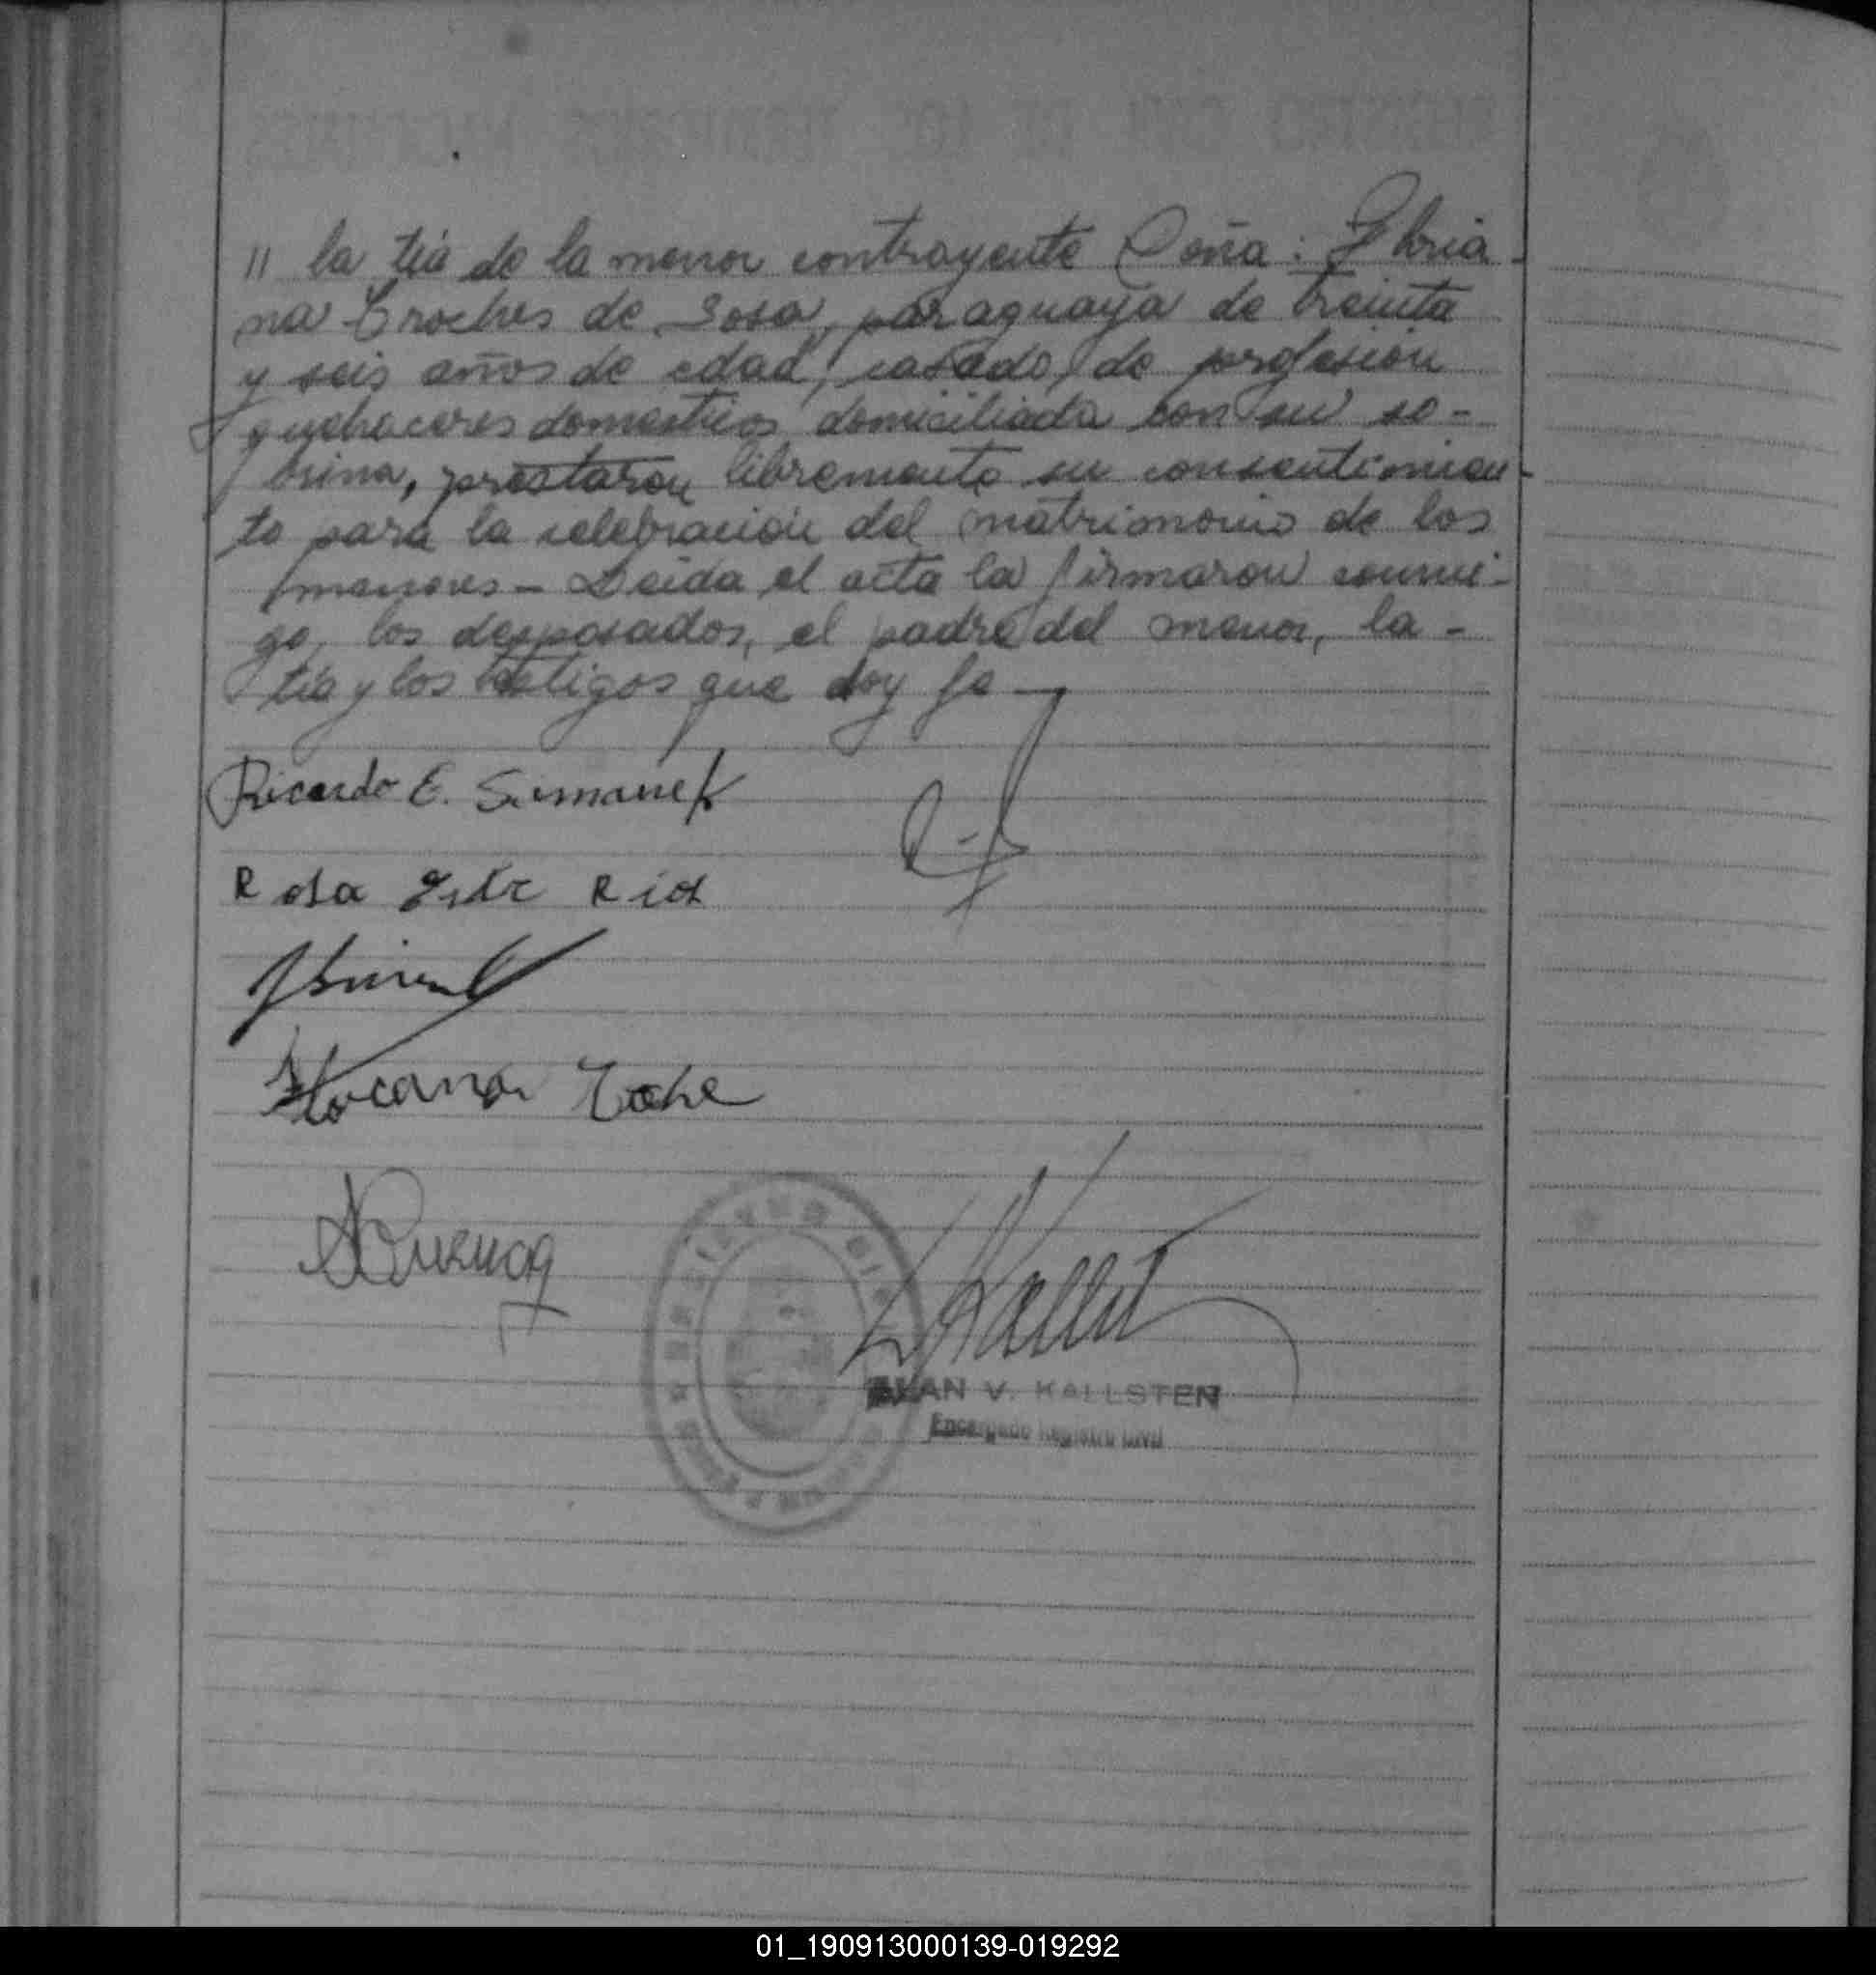 " la tía de la menor contrayente Doña:
na Troches de Sosa, paraguaya de treinta
y seis años de edad, casada, de profesión
quehaceres domesticos domiciliada con su so-
brina, prestaron libremente su consentimien-
to para la celebración del matrimonio de los
menores - Leida el acta la firmaron conmi-
go, los desposados, el padre del menor, la -
tía y los testigos que doy fe -
Ricardo E. Simanek
Rosa Ester Rios
ALAN V. KALLSTEN
Encargado Registro Civil
01_190913000139-019292